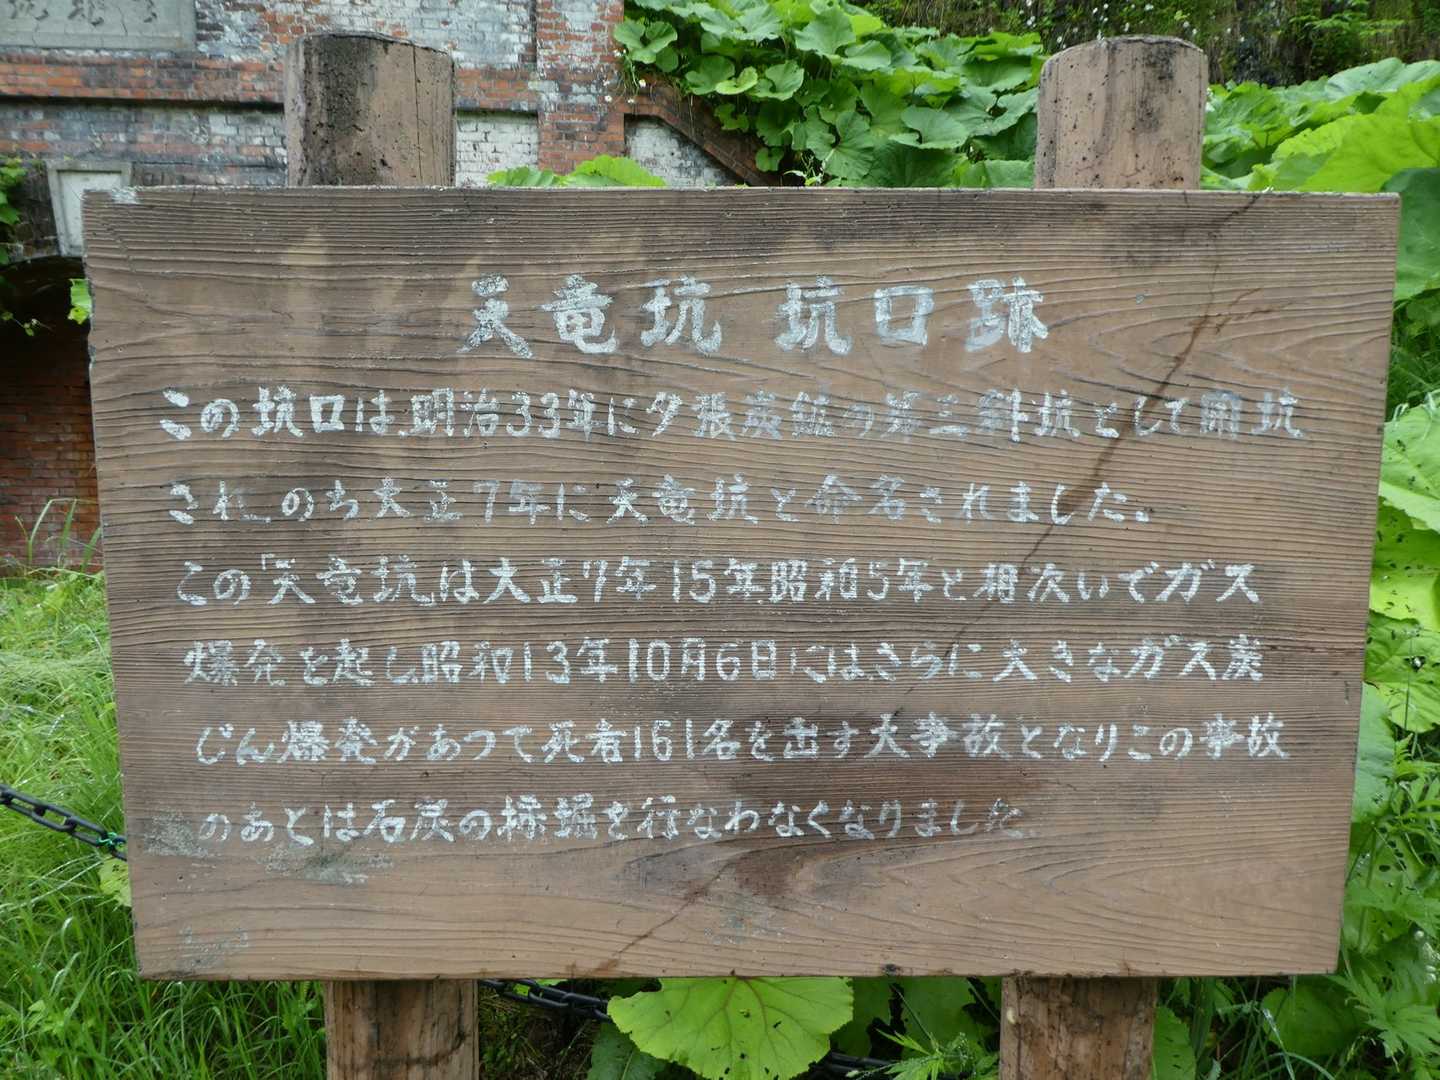 天竜坑 坑口跡
この坑口は明治33年に夕張炭鉱の第三斜坑として開坑
され、のち大正7年に天竜坑と命名されました。
この「天竜坑」は大正7年15年昭和5年と相次いでガス
爆発を起し昭和13年10月6日にはさらに大きなガス炭
じん爆発があつて死者161名を出す大事故となりこの事故
のあとは石炭の採掘を行なわなくなりました